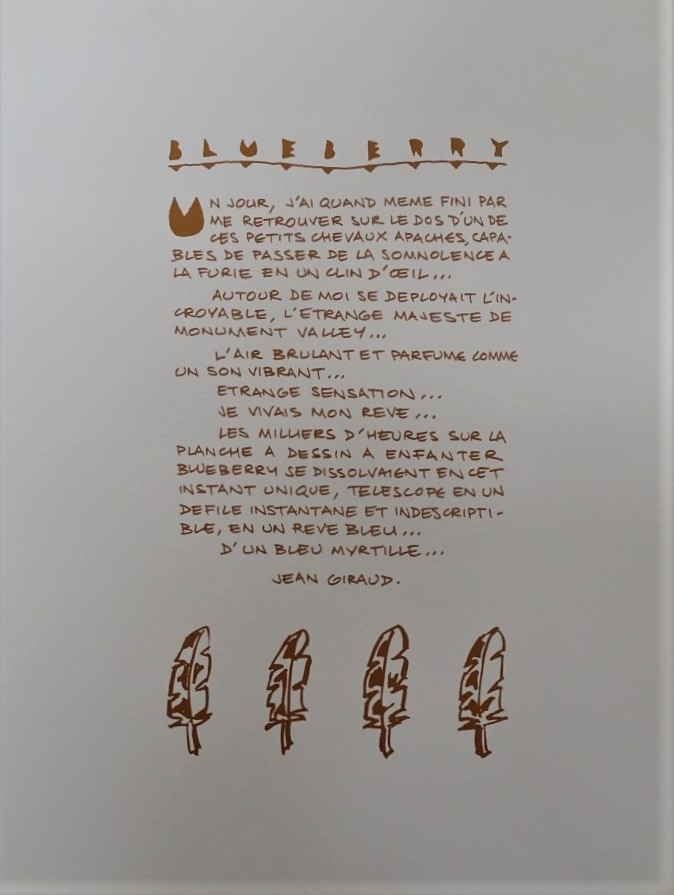 BLUEBERRY
UN JOUR, J'AI QUAND MEME FINI PAR
ME RETROUVER SUR LE DOS D'UN DE
CES PETITS CHEVAUX APACHES, CAPA-
BLES DE PASSER DE LA SOMNOLENCE A
LA FURIE EN UN CLIN D'ŒIL...
AUTOUR DE MOI SE DEPLOYAIT L'IN-
CROYABLE, L'ETRANGE MAJESTE DE
MONUMENT VALLEY...
L'AIR BRULANT ET PARFUME COMME
UN SON VIBRANT...
ETRANGE SENSATION...
JE VIVAIS MON REVE...
LES MILLIERS D'HEURES SUR LA
PLANCHE A DESSIN A ENFANTER
BLUEBERRY SE DISSOLVAIENT EN CET
INSTANT UNIQUE, TELESCOPE EN UN
DEFILE INSTANTANE ET INDESCRIPTI-
BLE, EN UN REVE BLEU...
D'UN BLEU MYRTILLE...
JEAN GIRAUD.